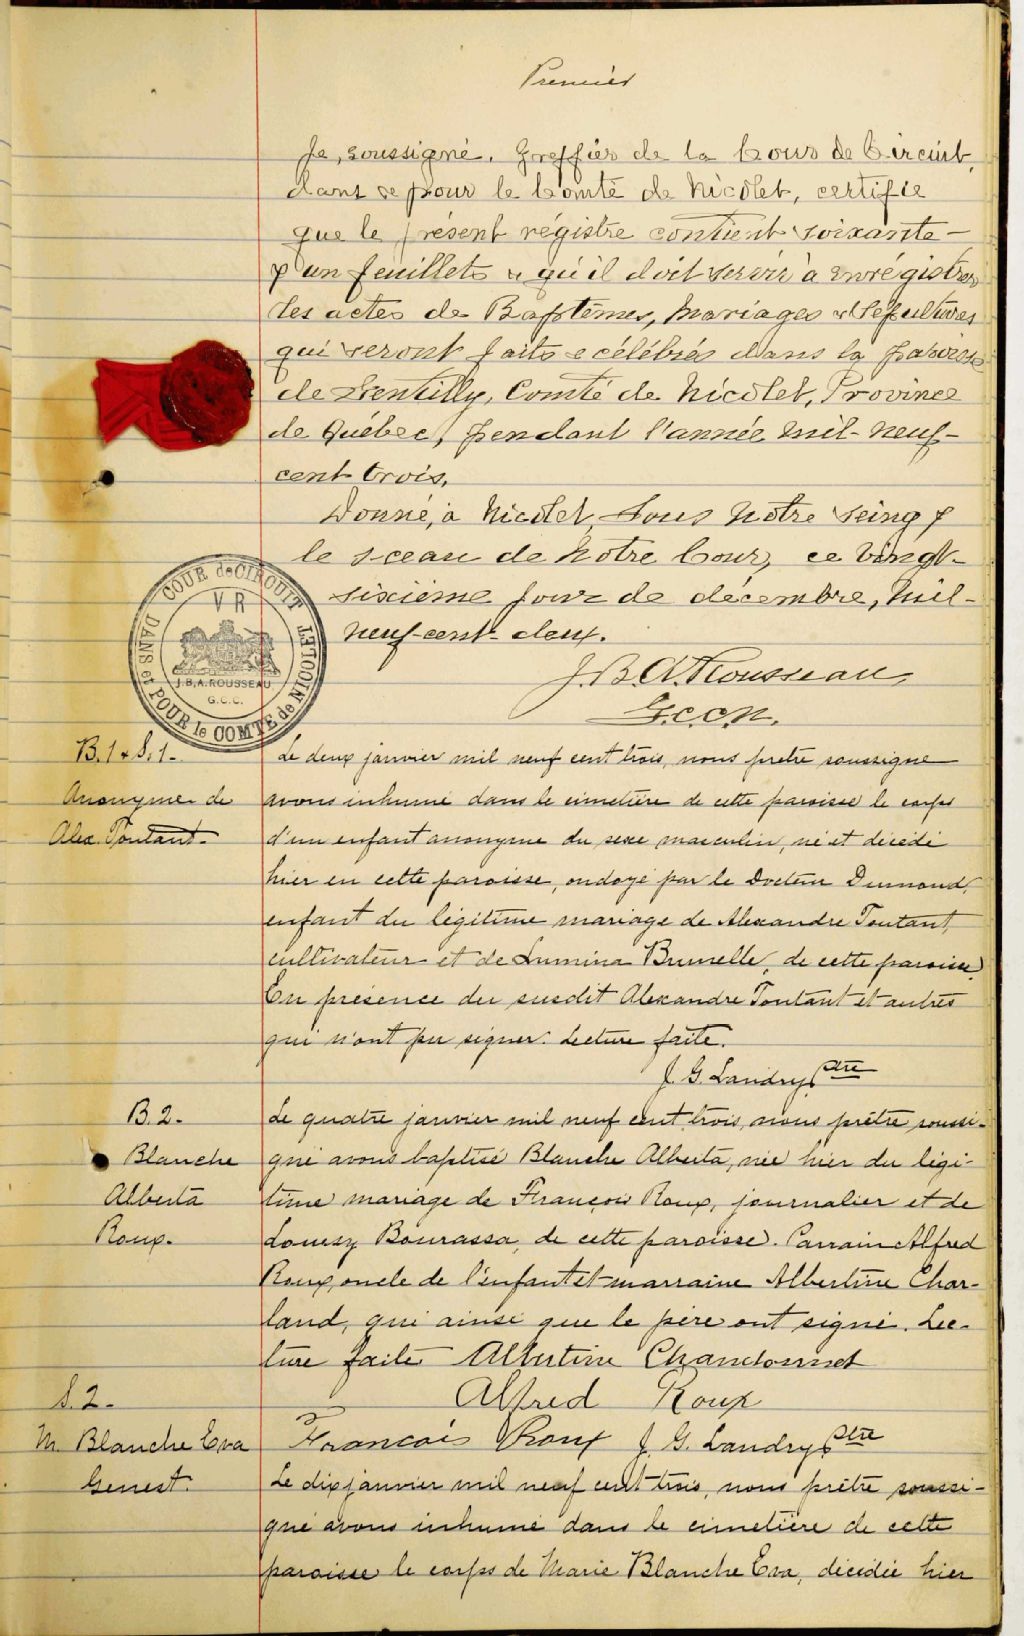 Premier
Je, soussigné, Greffier de la Cour de Circuit,
dans et pour le Comté de Nicolet, certifie
que le présent régistre contient soixante-
& un feuillets & qu'il doit servir à enrégistrer
les actes de Baptêmes, Mariages & Sépultures
qui seront faits & célébrés dans la paroisse
de Gentilly, Comté de Nicolet, Province
de Québec, pendant l'année mil-neuf-
cent trois,
Donné, à Nicolet, sous Notre Seing &
le sceau de Notre Cour, ce vingt-
sixième jour de décembre, mil-
neuf-cent-deux.
J. B. A. Rousseau,
G.C.C.N.
COUR de CIRCUIT
DANS et POUR le COMTE de NICOLET
V R
J.B.A. ROUSSEAU
G.C.C.
B.1 & S.1-
Anonyme de
Alex. Toutant.
Le deux janvier mil neuf cent trois, nous prêtre soussigné
avons inhumé dans le cimetière de cette paroisse le corps
d'un enfant anonyme du sexe masculin, né et décédé
hier en cette paroisse, ondoyé par le Docteur Dumond,
enfant du légitime mariage de Alexandre Toutant,
cultivateur et de Lumina Brunelle, de cette paroisse.
En présence du susdit Alexandre Toutant et autres
qui n'ont pu signer. Lecture faite.
J. G. Landry, Ptre
B.2-
Blanche
Alberta
Roux.
Le quatre janvier mil neuf cent trois, nous prêtre soussi-
gné avons baptisé Blanche Alberta, née hier du légi-
time mariage de François Roux, journalier et de
Louisy Bourassa, de cette paroisse. Parrain Alfred
Roux, oncle de l'enfant et marraine Albertine Char-
land, qui ainsi que le père ont signé. Lec-
ture faite Albertine Chandonnet
Alfred Roux
François Roux J. G. Landry, Ptre
S.2-
M. Blanche Eva
Genest.
Le dix janvier mil neuf cent trois, nous prêtre soussi-
gné avons inhumé dans le cimetière de cette
paroisse le corps de Marie Blanche Eva, décédée hier